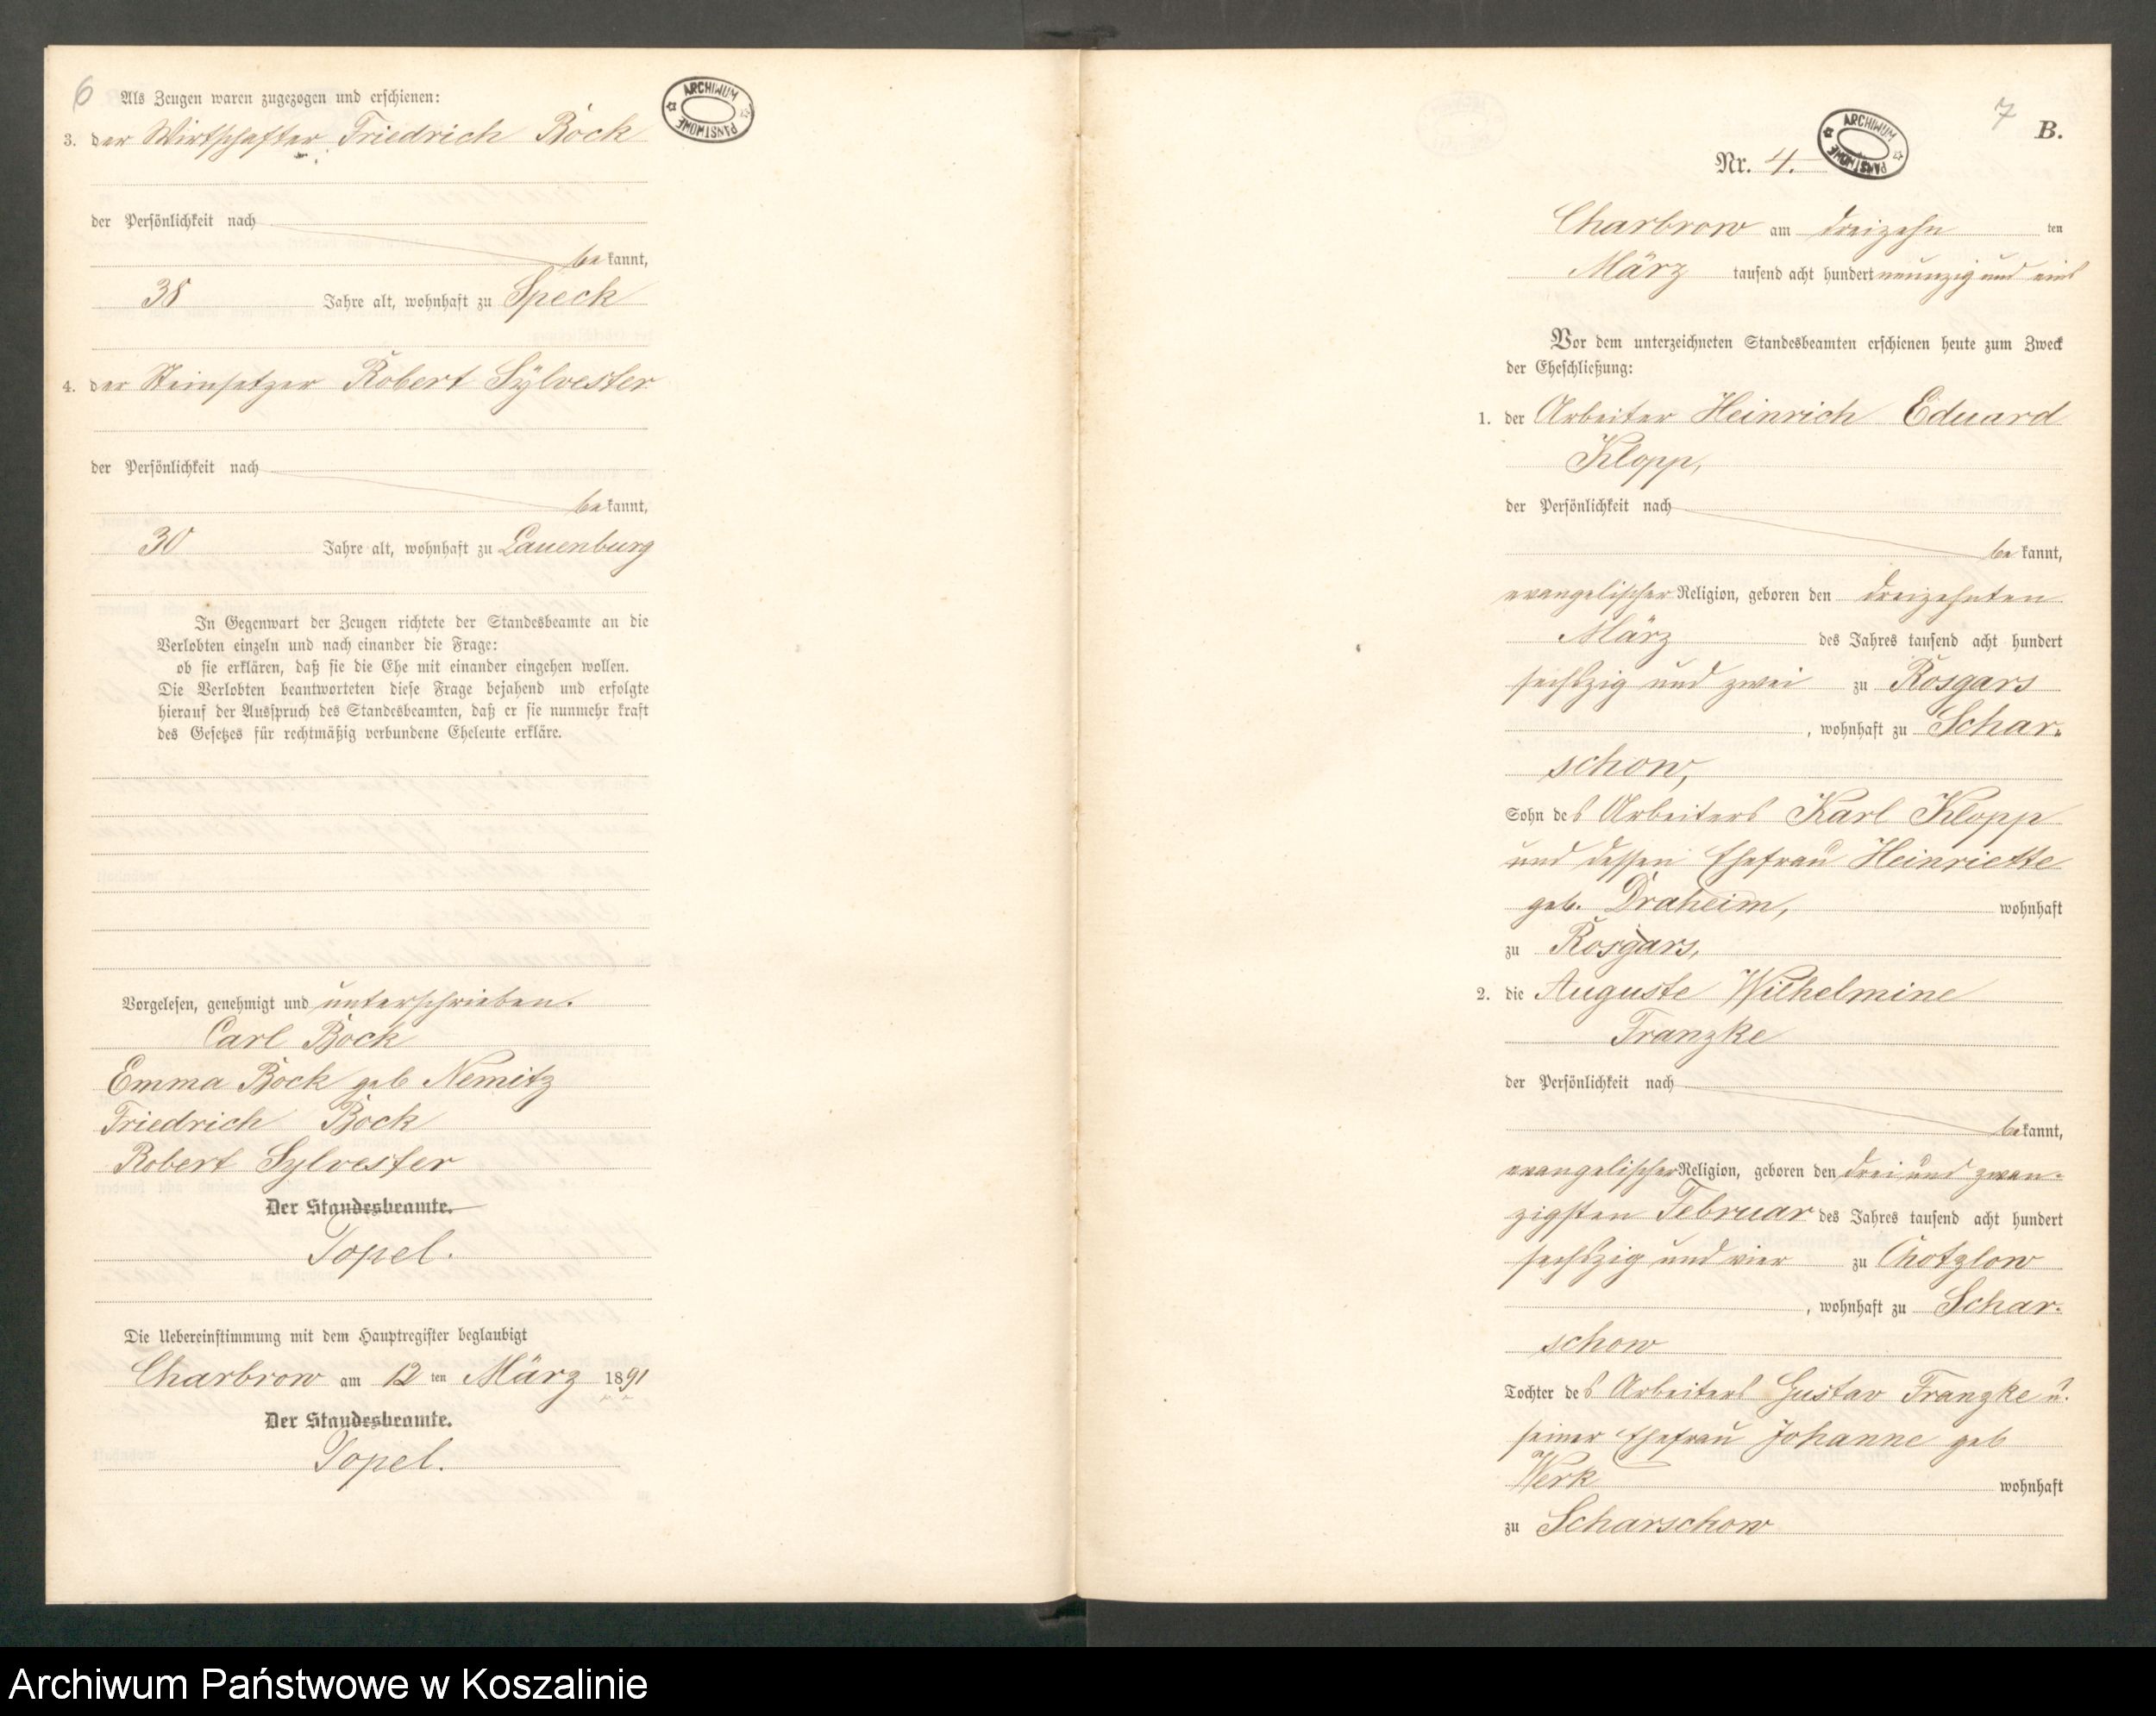 6
Als Zeugen waren zugezogen und erschienen:
3. der Wirthschafter Friedrich Bock
der Persönlichkeit nach
be kannt,
38 Jahre alt, wohnhaft zu Speck
4. der Steinsetzer Robert Sylvester
der Persönlichkeit nach
be kannt,
30 Jahre alt, wohnhaft zu Lauenburg
In Gegenwart der Zeugen richtete der Standesbeamte an die
Verlobten einzeln und nach einander die Frage:
ob sie erklären, daß sie die Ehe mit einander eingehen wollen.
Die Verlobten beantworteten diese Frage bejahend und erfolgte
hierauf der Ausspruch des Standesbeamten, daß er sie nunmehr kraft
des Gesetzes für rechtmäßig verbundene Eheleute erkläre.
Vorgelesen, genehmigt und unterschrieben.
Carl Bock
Emma Bock geb Nemitz
Friedrich Bock
Robert Sylvester
Der Standesbeamte.
Topel.
Die Uebereinstimmung mit dem Hauptregister beglaubigt
Charbrow am 12 ten März 1891
Der Standesbeamte.
Topel.
ARCHIWUM PAŃSTWOWE
7
B.
ARCHIWUM PAŃSTWOWE
Nr. 4.
Charbrow am dreizehn ten
März tausend acht hundert neunzig und eins
Vor dem unterzeichneten Standesbeamten erschienen heute zum Zweck
der Eheschließung:
1. der Arbeiter Heinrich Eduard
Klopp,
der Persönlichkeit nach
be kannt,
evangelischer Religion, geboren den dreizehnten
März des Jahres tausend acht hundert
sechszig und zwei zu Rosgars
, wohnhaft zu Schar-
schow,
Sohn des Arbeiters Karl Klopp
und dessen Ehefrau Heinriette
geb. Draheim, wohnhaft
zu Rosgars,
2. die Auguste Wilhelmine
Franzke
der Persönlichkeit nach
be kannt,
evangelischer Religion, geboren den drei und zwan-
zigsten Februar des Jahres tausend acht hundert
sechszig und vier zu Chotzlow
, wohnhaft zu Schar-
schow
Tochter des Arbeiters Gustav Franzke u.
seiner Ehefrau Johanne geb
Werk wohnhaft
zu Scharschow
Archiwum Państwowe w Koszalinie